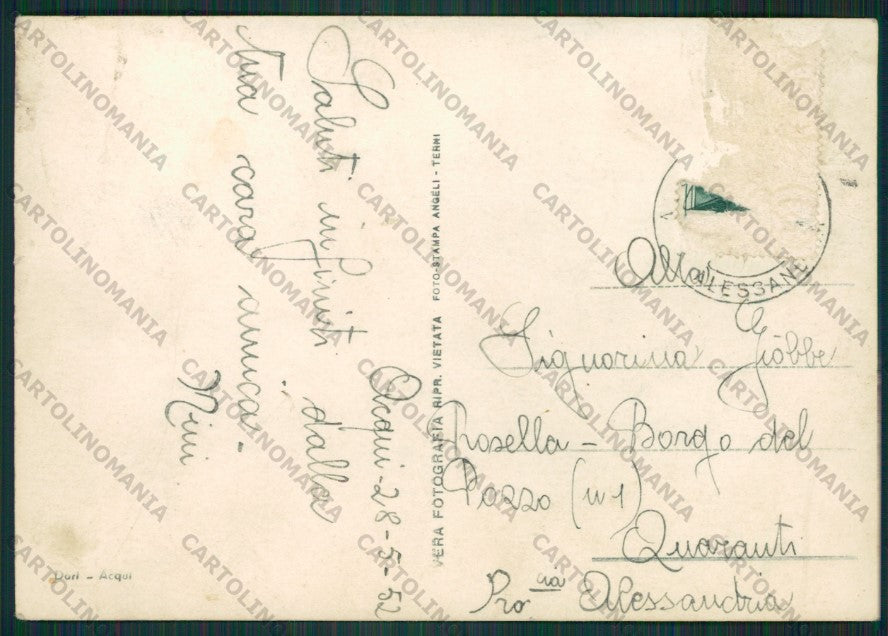 Acqui - 28-5-52
Saluti infiniti dalla
tua cara amica -
Nini
VERA FOTOGRAFIA RIPR. VIETATA FOTO-STAMPA ANGELI - TERNI
Alla
Signorina Giobbe
Rosella - Borgo del
Pozzo (n 1)
Quaranti
Pro cia Alessandria
ALESSAN
Dori - Acqui
CARTOLINOMANIA